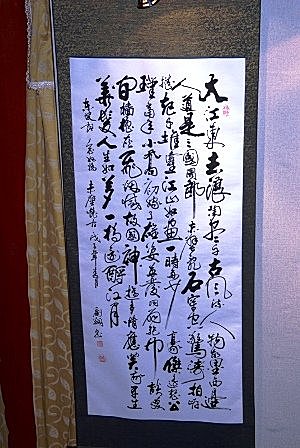 大江東去浪淘盡千古風流人物故壘西邊
人道是三國周郎赤壁亂石穿空驚濤拍岸
捲起千堆雪江山如畫一時多少豪傑遙想公
瑾當年小喬初嫁了雄姿英發羽扇綸巾談笑
間檣櫓灰飛煙滅故國神遊多情應笑我早生
華髮人生如夢一樽還酹江月
東坡詞念奴嬌赤壁懷古戊子年